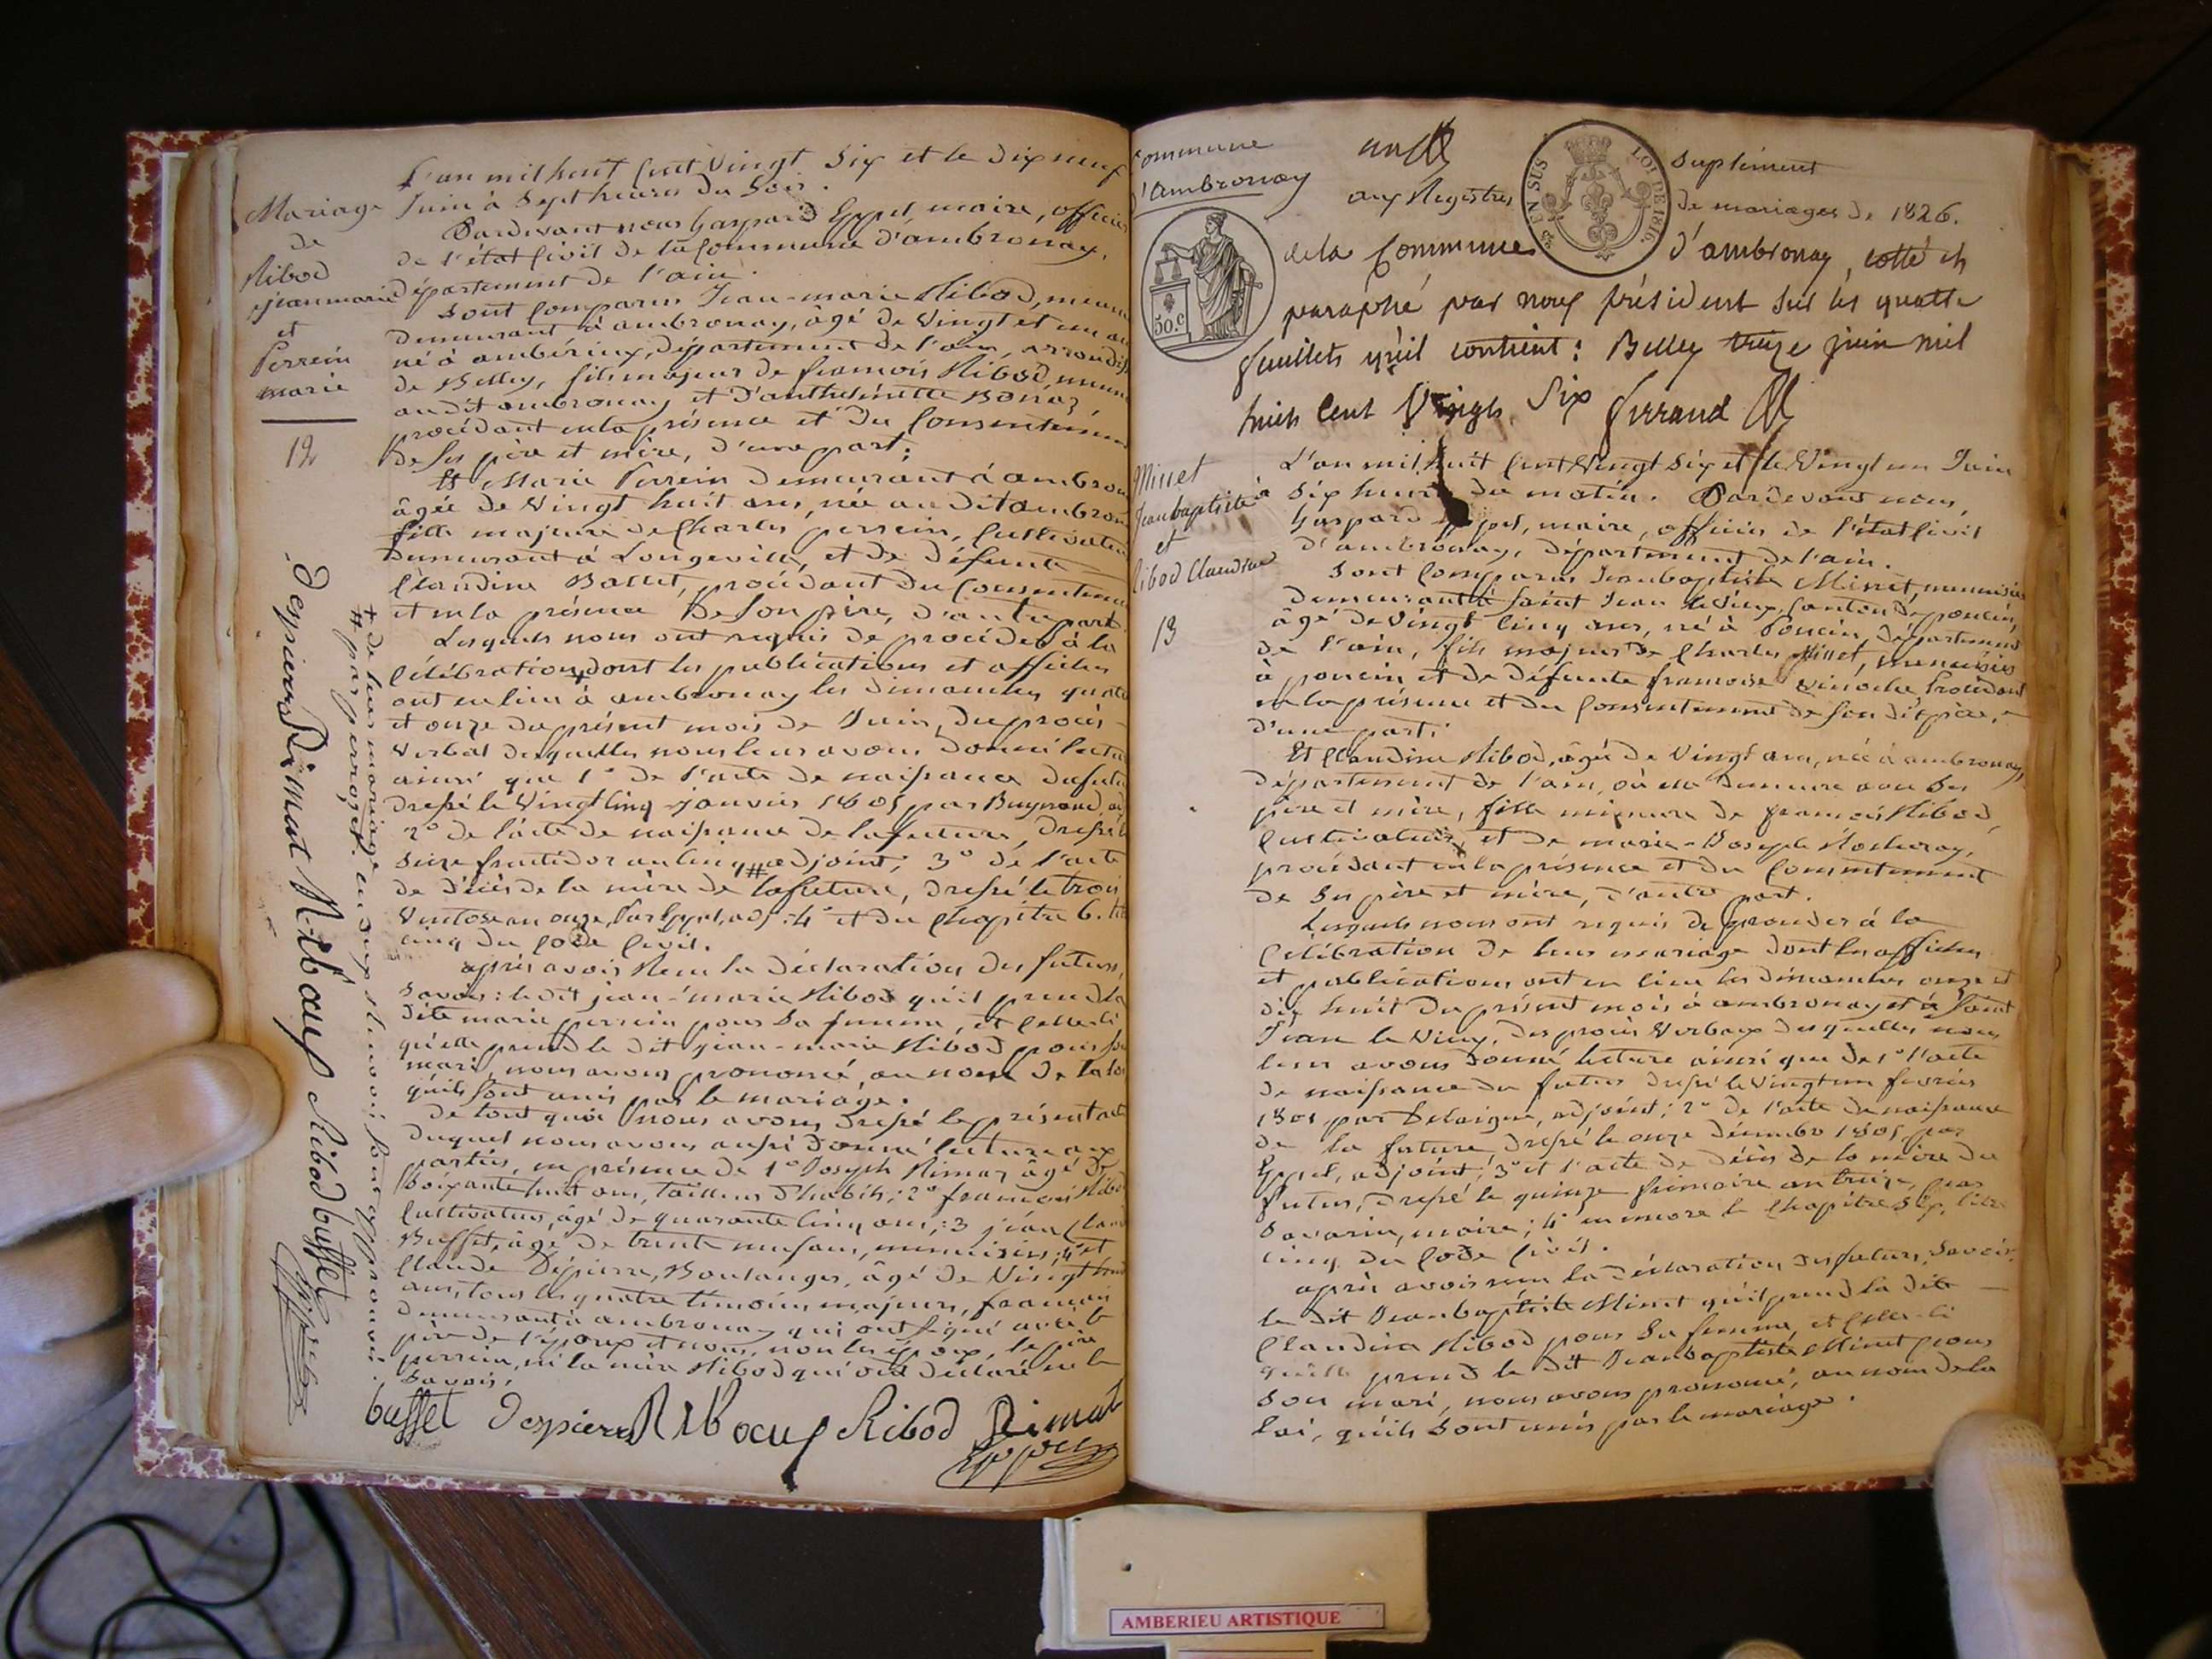 Mariage
de
Ribod
jean marie
et
Perrein
marie
12
L'an mil huit cent Vingt Six et le dix neuf
Juin à Sept heures du Soir.
Pardevant nous Gaspard Eppel, maire, officier
de l'état Civil de la Commune d'ambronay,
département de l'ain.
Sont Comparus Jean-marie Ribod,
demeurant à ambronay, âgé de Vingt et un
né à ambérieux, département de l'ain, arrondiss
de Belley, fils majeur de francois Ribod,
au dit ambronay et d'anthelmette Bonaz,
procédant en la présence et du Consentemen
de Ses père et mère, d'une part;
Et Marie Perrein demeurant à ambron
âgée de Vingt huit ans, née au dit ambron
fille majeure de Charles perrein, Cultivateu
demeurant à Longeville, et de défunte
Claudine Ballet, procédant du Consenteme
et en la présence de Son père, d'autre part.
Lesquels nous ont requis de procéder à la
Célébration dont les publications et affiches
ont eu lieu à ambronay les dimanches quatre
et onze du présent mois de Juin, du procès
Verbal desquelles nous leur avons donné lectu
ainsi que 1º de l'acte de naissance du futu
dressé le Vingt Cinq janvier 1805 par
2º de l'acte de naissance de la future, dressé l
Seize fructidor an Cinq # adjoint; 3º de l'acte
de décès de la mère de la future, dressé le trois
Ventose an onze, Par Eppel, adj. 4º et du Chapitre 6. tit
cinq du Code Civil.
après avoir Recu la déclaration des futurs,
Savoir: le dit jean-marie Ribod qu'il prend la
dite marie perrein pour Sa femme, et Celle ci
qu'elle prend le dit jean-marie Ribod pour So
mari, nous avons prononcé, au nom de la loi
qu'ils Sont unis par le mariage.
De tout quoi nous avons dressé le présent acte
duquel nous avons aussi donné lecture aux
parties, en présence de 1º Joseph Rimaz âgé de
Soixante huit ans, tailleur d'habits; 2º francois Ribo
Cultivateur, âgé de quarante Cinq ans; 3 jean Clau
Buffet, âgé de trente neuf ans, menuisier; 4º et
Claude Dépierre, Boulanger, âgé de Vingt
ans, tous les quatre témoins majeurs, francais
demeurant à ambronay qui ont Signé avec le
père de l'époux et nous, non les époux, le père
perrein, ni la mère Ribod qui ont déclaré ne le
Savoir,
buffet Despierre Ribod Rimat
Eppel
# de leur mariage
# par perrozet
buffet
Commune
d'Ambronay
aux Registres
Suplément
de mariages de 1826.
EN SUS
LOI DE 1816
50.c
de la Commune d'ambronay, cotté et
paraphé par nous président Sur les quatre
feuillets qu'il contient: Belley treize juin mil
huit Cent Vingt Six Ferrand
Minet
Jean baptiste
et
Ribod Claudine
13
L'an mil huit Cent Vingt Six et le Vingt un Juin
à Six heures du matin. Pardevant nous,
Gaspard Eppel, maire, officier de l'état Civil
d'ambronay, département de l'ain.
Sont Comparus Jean baptiste Minet, menuisier
demeurant à Saint Jean le Vieux, Canton de poncin,
âgé de Vingt Cinq ans, né à Poncin, département
de l'ain, fils majeur de Charles Minet, menuisier
à poncin et de défunte francoise Procédant
en la présence et du Consentement de Son dit père,
d'une part;
Et Claudine Ribod, âgé de Vingt ans, née à ambronay,
département de l'ain, où elle demeure avec Ses
père et mère, fille mineure de francois Ribod,
Cultivateur, et de marie-Joseph
procédant en la présence et du Consentement
de Ses père et mère, d'autre part.
Lesquels nous ont requis de procéder à la
Célébration de leur mariage dont les affiches
et publications ont eu lieu les dimanches onze et
dix huit du présent mois à ambronay et à Saint
Jean le Vieux, des procès Verbaux desquelles nous
leur avons donné lecture ainsi que de 1º l'acte
de naissance du futur dressé le Vingt un fevrier
1801 par Delaigue, adjoint; 2º de l'acte de naissance
de la future, dressé le onze décembre 1805 par
Eppel, adjoint; 3º et l'acte de décès de la mère du
futur, dressé le quinze frimaire an treize, par
Savarin, maire; 4º encore le Chapitre Six, titre
cinq du Code Civil.
après avoir recu la déclaration des futurs, Savoir:
le dit Jean baptiste Minet qu'il prend la dite
Claudine Ribod pour Sa femme, et Celle-ci
qu'elle prend le dit Jean baptiste Minet pour
Son mari, nous avons prononcé, au nom de la
loi, qu'ils Sont unis par le mariage.
AMBERIEU ARTISTIQUE